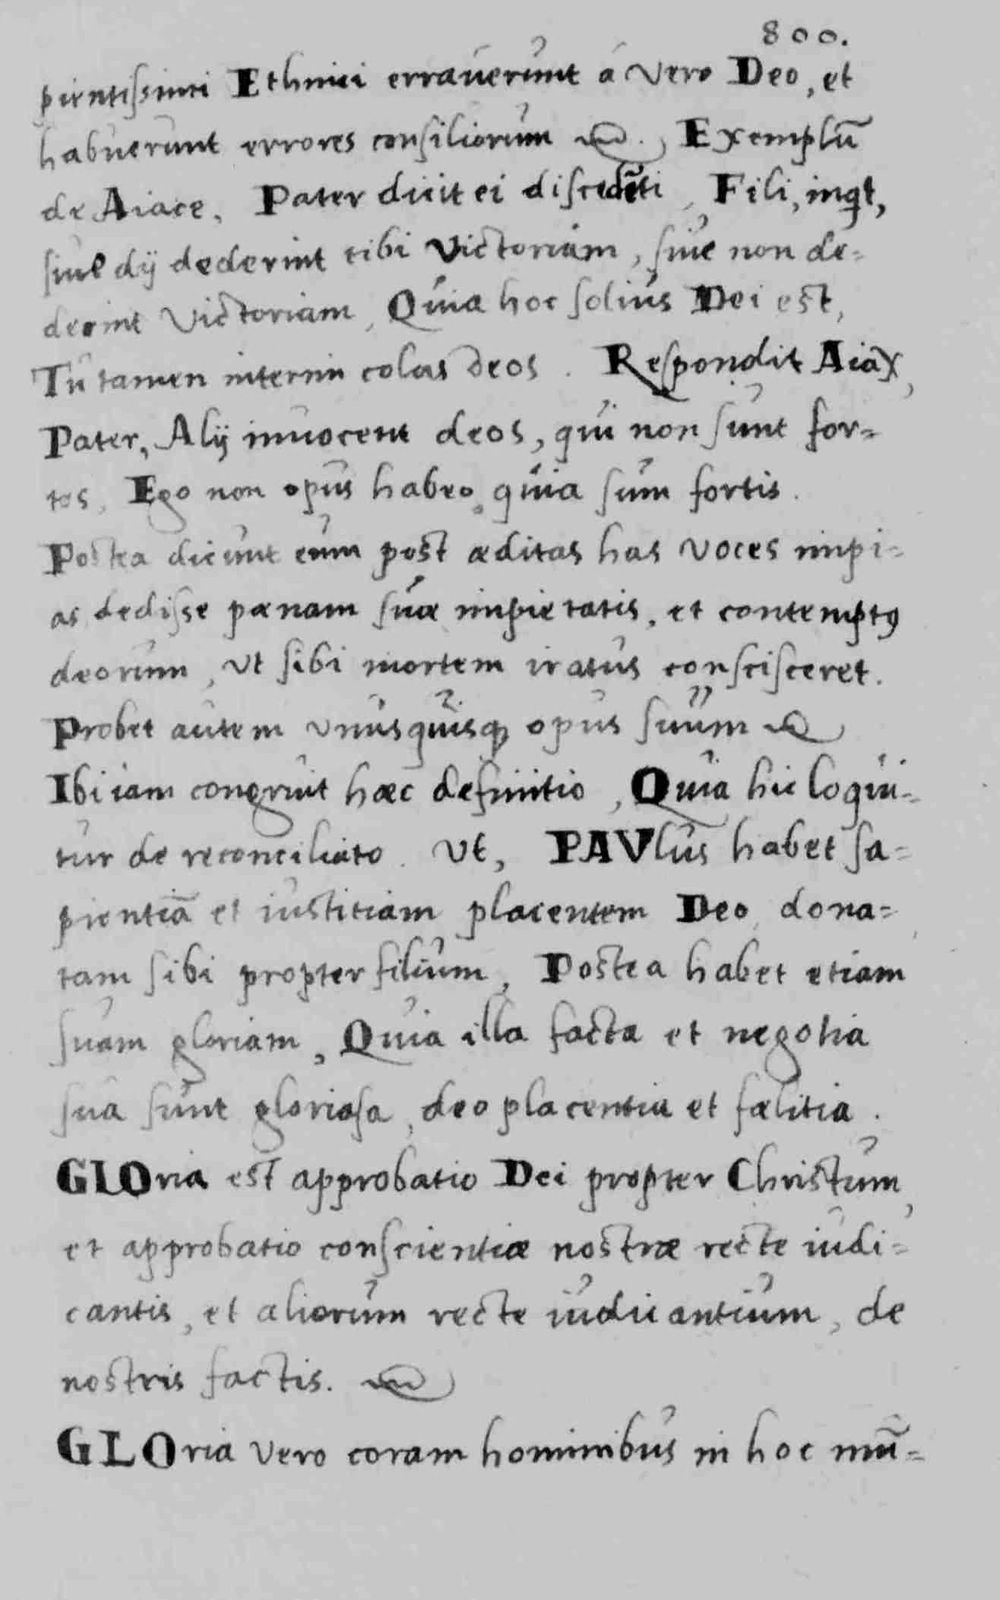 800.
pientissimi Ethnici erraverunt á vero Deo, et
habuerunt errores consiliorum etc. Exemplū
de Aiace. Pater dicit ei discedēti, Fili, inqt,
siue dij dederint tibi Victoriam, siue non de=
derint Victoriam, Quia hoc solius Dei est,
Tu tamen interim colas deos. Respondit Aiax,
Pater, Alij inuocent deos, qui non sunt for=
tes, Ego non opus habeo, quia sum fortis.
Postea dicunt eum post æditas has voces impi=
as dedisse pœnam suæ impietatis, et contemptꝰ
deorum, Ut sibi mortem iratus conscisceret.
Probet autem unusquisqꝫ opus suum etc.
Ibi iam congruit hæc definitio, Quia hic loqui=
tur de reconciliato. Ut, PAVlus habet sa=
pientiā et iustitiam placentem Deo, dona=
tam sibi propter filium, Postea habet etiam
suam gloriam, Quia illa facta et negotia
sua sunt gloriosa, deo placentia et fælitia.
GLOria est approbatio Dei propter Christum,
et approbatio conscientiæ nostræ recte iudi=
cantis, et aliorum recte iudicantium, de
nostris factis. etc.
GLOria vero coram hominibus in hoc mū=